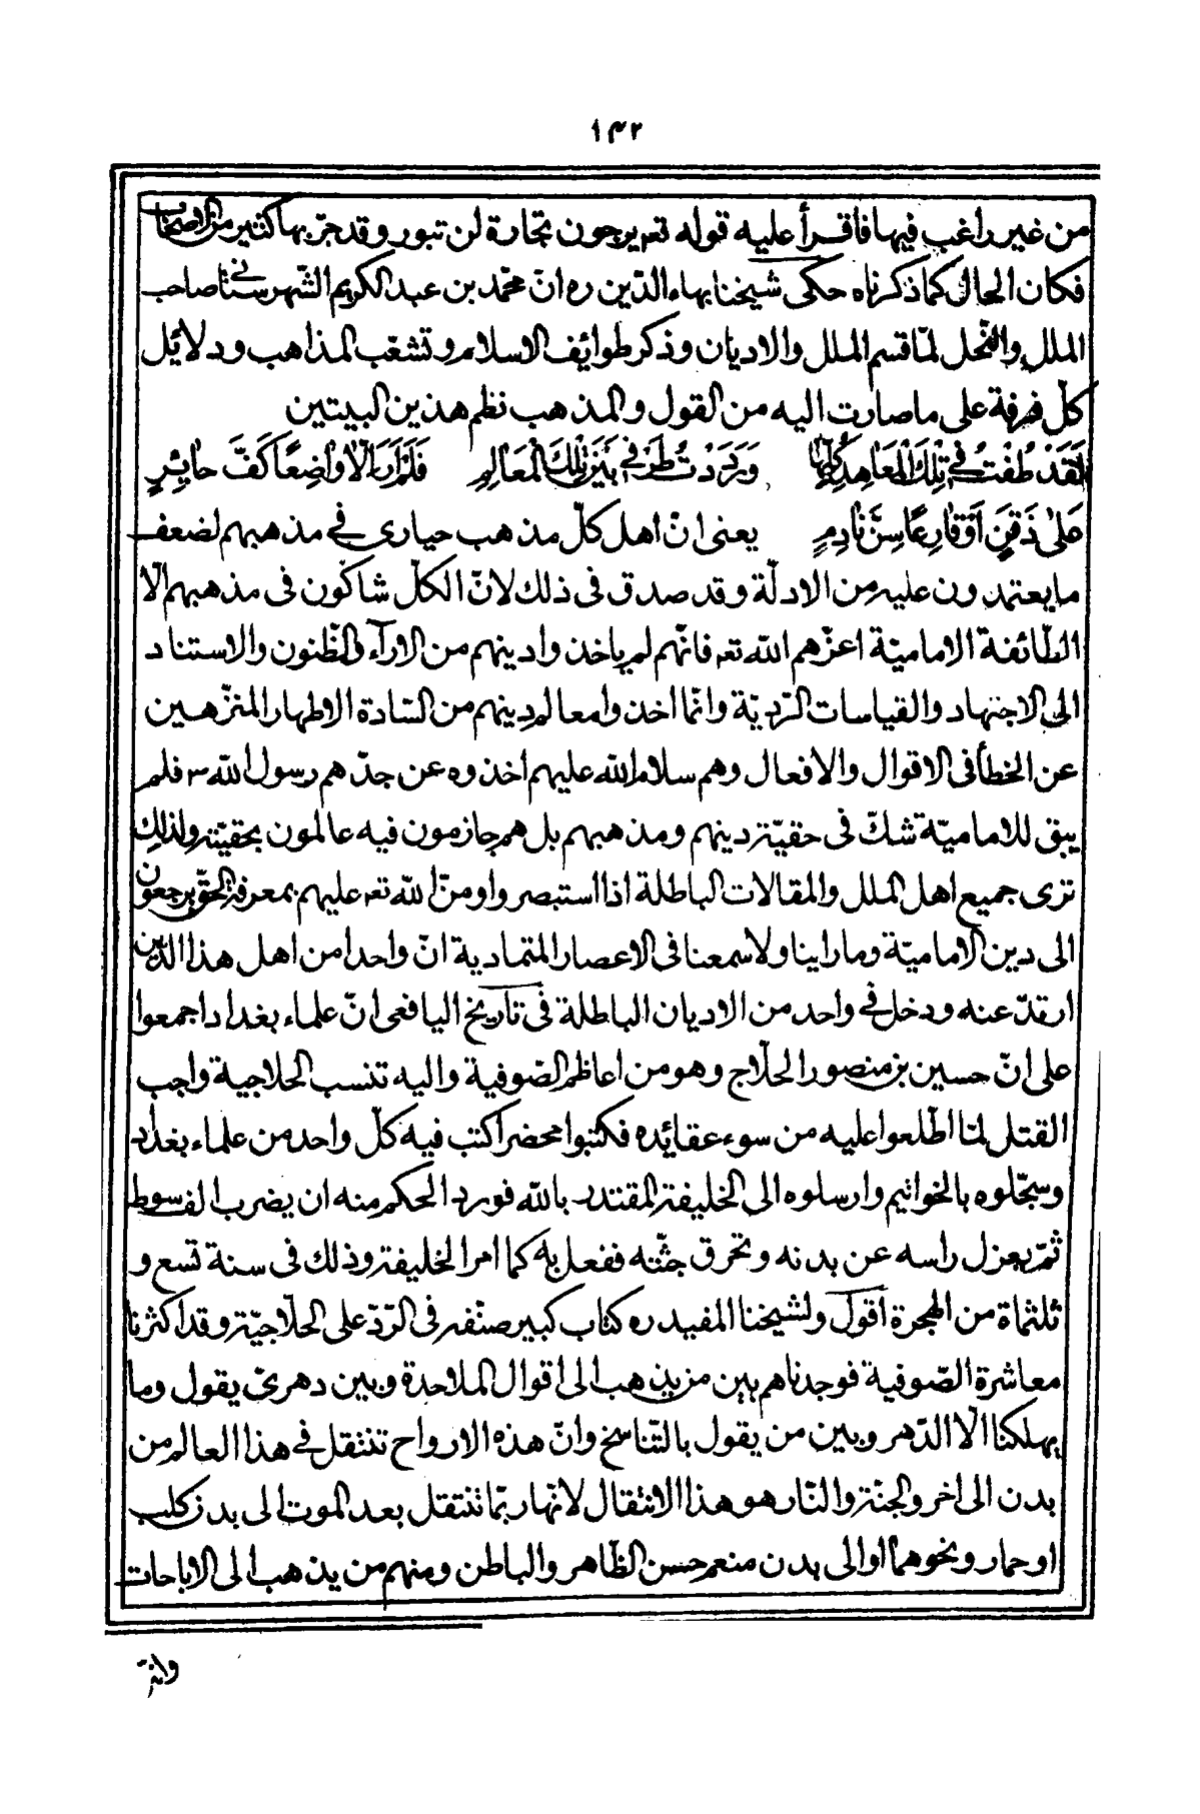 ١٤٢
من غير راغب فيها فاقرأ عليه قوله تعه يرجون تجارة لن تبور وقد جرّبها كثير من الاصحاب
فكان الحال كما ذكرناه حكى شيخنا بهاء الدّين ره انّ محمّد بن عبد الكريم الشّهرستانى صاحب
الملل والنّحل لمّا قسم الملل والاديان وذكر طوايف الاسلام وتشعّب المذاهب ودلائل
كلّ فرقة على ما صارت اليه من القول والمذهب نظم هذين البيتين
لَقَدْ طُفْتُ فى تِلْكَ الْمَعاهِدِ كُلِّها وَرَدَّدْتُ طَرْفى بَيْنَ تِلْكَ الْمَعَالِمِ فَلَمْ اَرَ اِلّا وَاضِعًا كَفَّ حائِرٍ
عَلىٰ ذَقَنٍ اَوْ قارِعًا سِنَّ نادِمٍ يعنى انّ اهل كلّ مذهب حيارى فى مذهبهم لضعف
ما يعتمدون عليه من الادلّة وقد صدق فى ذلك لانّ الكلّ شاكّون فى مذهبهم الّا
الطّائفة الاماميّة اعزّهم الله تعه فانّهم لم ياخذوا دينهم من الاراء والظّنون والاستناد
الى الاجتهاد والقياسات الرّديّة وانّما اخذوا معالم دينهم من السّادة الاطهار المنزّهين
عن الخطأ فى الاقوال والافعال وهم سلام الله عليهم اخذوه عن جدّهم رسول الله ص فلم
يبق للاماميّة شكّ فى حقيّة دينهم ومذهبهم بل هم جازمون فيه عالمون بحقيّته ولذلك
ترى جميع اهل الملل والمقالات الباطلة اذا استبصروا ومنّ الله تعه عليهم بمعرفة الحقّ يرجعون
الى دين الاماميّة وما راينا ولا سمعنا فى الاعصار المتمادية انّ واحدا من اهل هذا الدّين
ارتدّ عنه ودخل فى واحد من الاديان الباطلة فى تاريخ اليافعى انّ علماء بغداد اجمعوا
على انّ حسين بن منصور الحلّاج وهو من اعاظم الصّوفية واليه تنسب الحلاجية واجب
القتل لمّا اطّلعوا عليه من سوء عقائده فكتبوا محضرا كتب فيه كلّ واحد من علماء بغداد
وسجّلوه بالخواتيم وارسلوه الى الخليفة المقتدر بالله فورد الحكم منه ان يضرب الف سوط
ثمّ يعزل راسه عن بدنه وتحرق جثّته ففعل به كما امر الخليفة وذلك فى سنة تسع و
ثلثماة من الهجرة اقول ولشيخنا المفيد ره كتاب كبير صنّفه فى الرّدّ على الحلّاجيّة وقد اكثرنا
معاشرة الصّوفية فوجدناهم بين من يذهب الى اقوال الملاحدة وبين دهرىّ يقول وما
يهلكنا الّا الدّهر وبين من يقول بالتّناسخ وانّ هذه الارواح تنتقل فى هذا العالم من
بدن الى اخر والجنّة والنّار هو هذا الانتقال لانها ربّما تنتقل بعد الموت الى بدن كلب
او حمار ونحوهما او الى بدن منعم حسن الظّاهر والباطن ومنهم من يذهب الى الاباحات